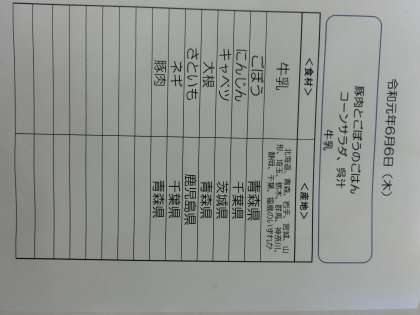 令和元年6月6日（木）
豚肉とごぼうのごはん
コーンサラダ、呉汁
牛乳
＜食材＞ ＜産地＞
牛乳 北海道、青森、岩手、宮城、山形、埼玉、栃木、群馬、神奈川、静岡、千葉、福島のいずれか
ごぼう 青森県
にんじん 千葉県
キャベツ 茨城県
大根 青森県
さといも 鹿児島県
ネギ 千葉県
豚肉 青森県